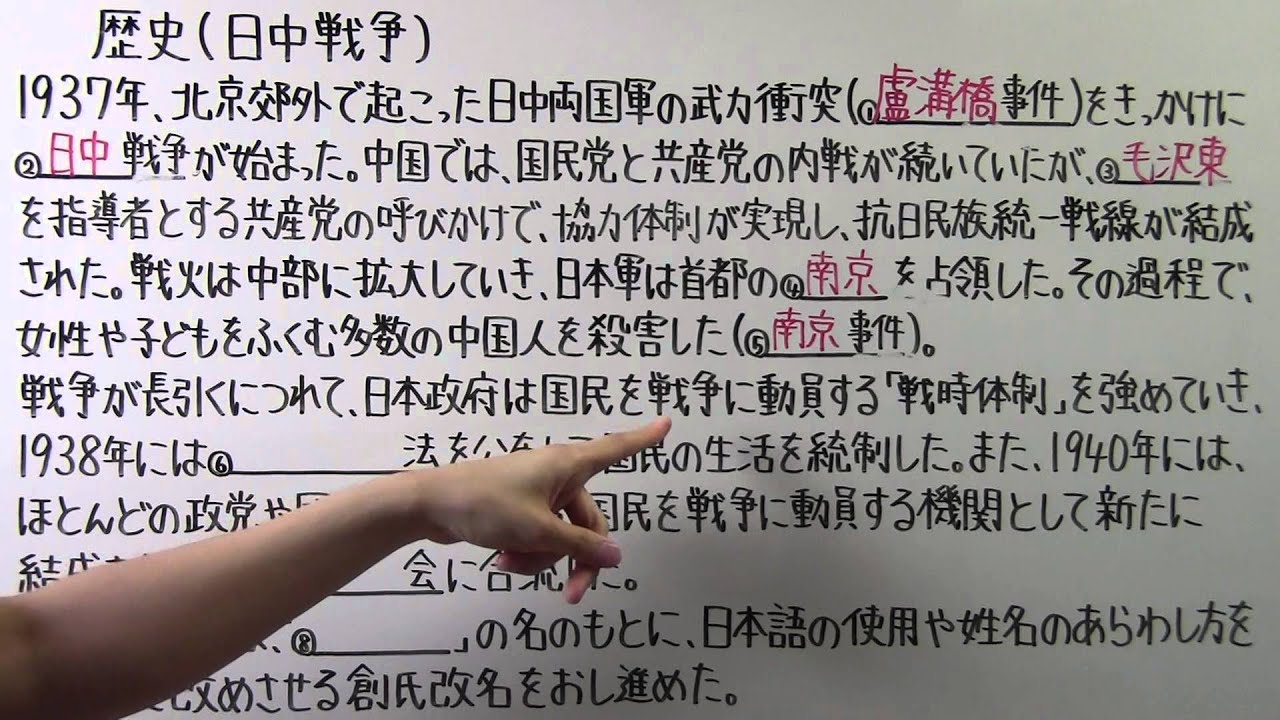 歴史(日中戦争)
1937年、北京郊外で起こった日中両国軍の武力衝突(①盧溝橋事件)をきっかけに
②日中戦争が始まった。中国では、国民党と共産党の内戦が続いていたが、③毛沢東
を指導者とする共産党の呼びかけで、協力体制が実現し、抗日民族統一戦線が結成
された。戦火は中部に拡大していき、日本軍は首都の④南京を占領した。その過程で、
女性や子どもをふくむ多数の中国人を殺害した(⑤南京事件)。
戦争が長引くにつれて、日本政府は国民を戦争に動員する「戦時体制」を強めていき、
1938年には⑥ 法を公 国民の生活を統制した。また、1940年には、
ほとんどの政党や 国民を戦争に動員する機関として新たに
結成 会に合流した。
⑧ 」の名のもとに、日本語の使用や姓名のあらわし方を
改めさせる創氏改名をおし進めた。